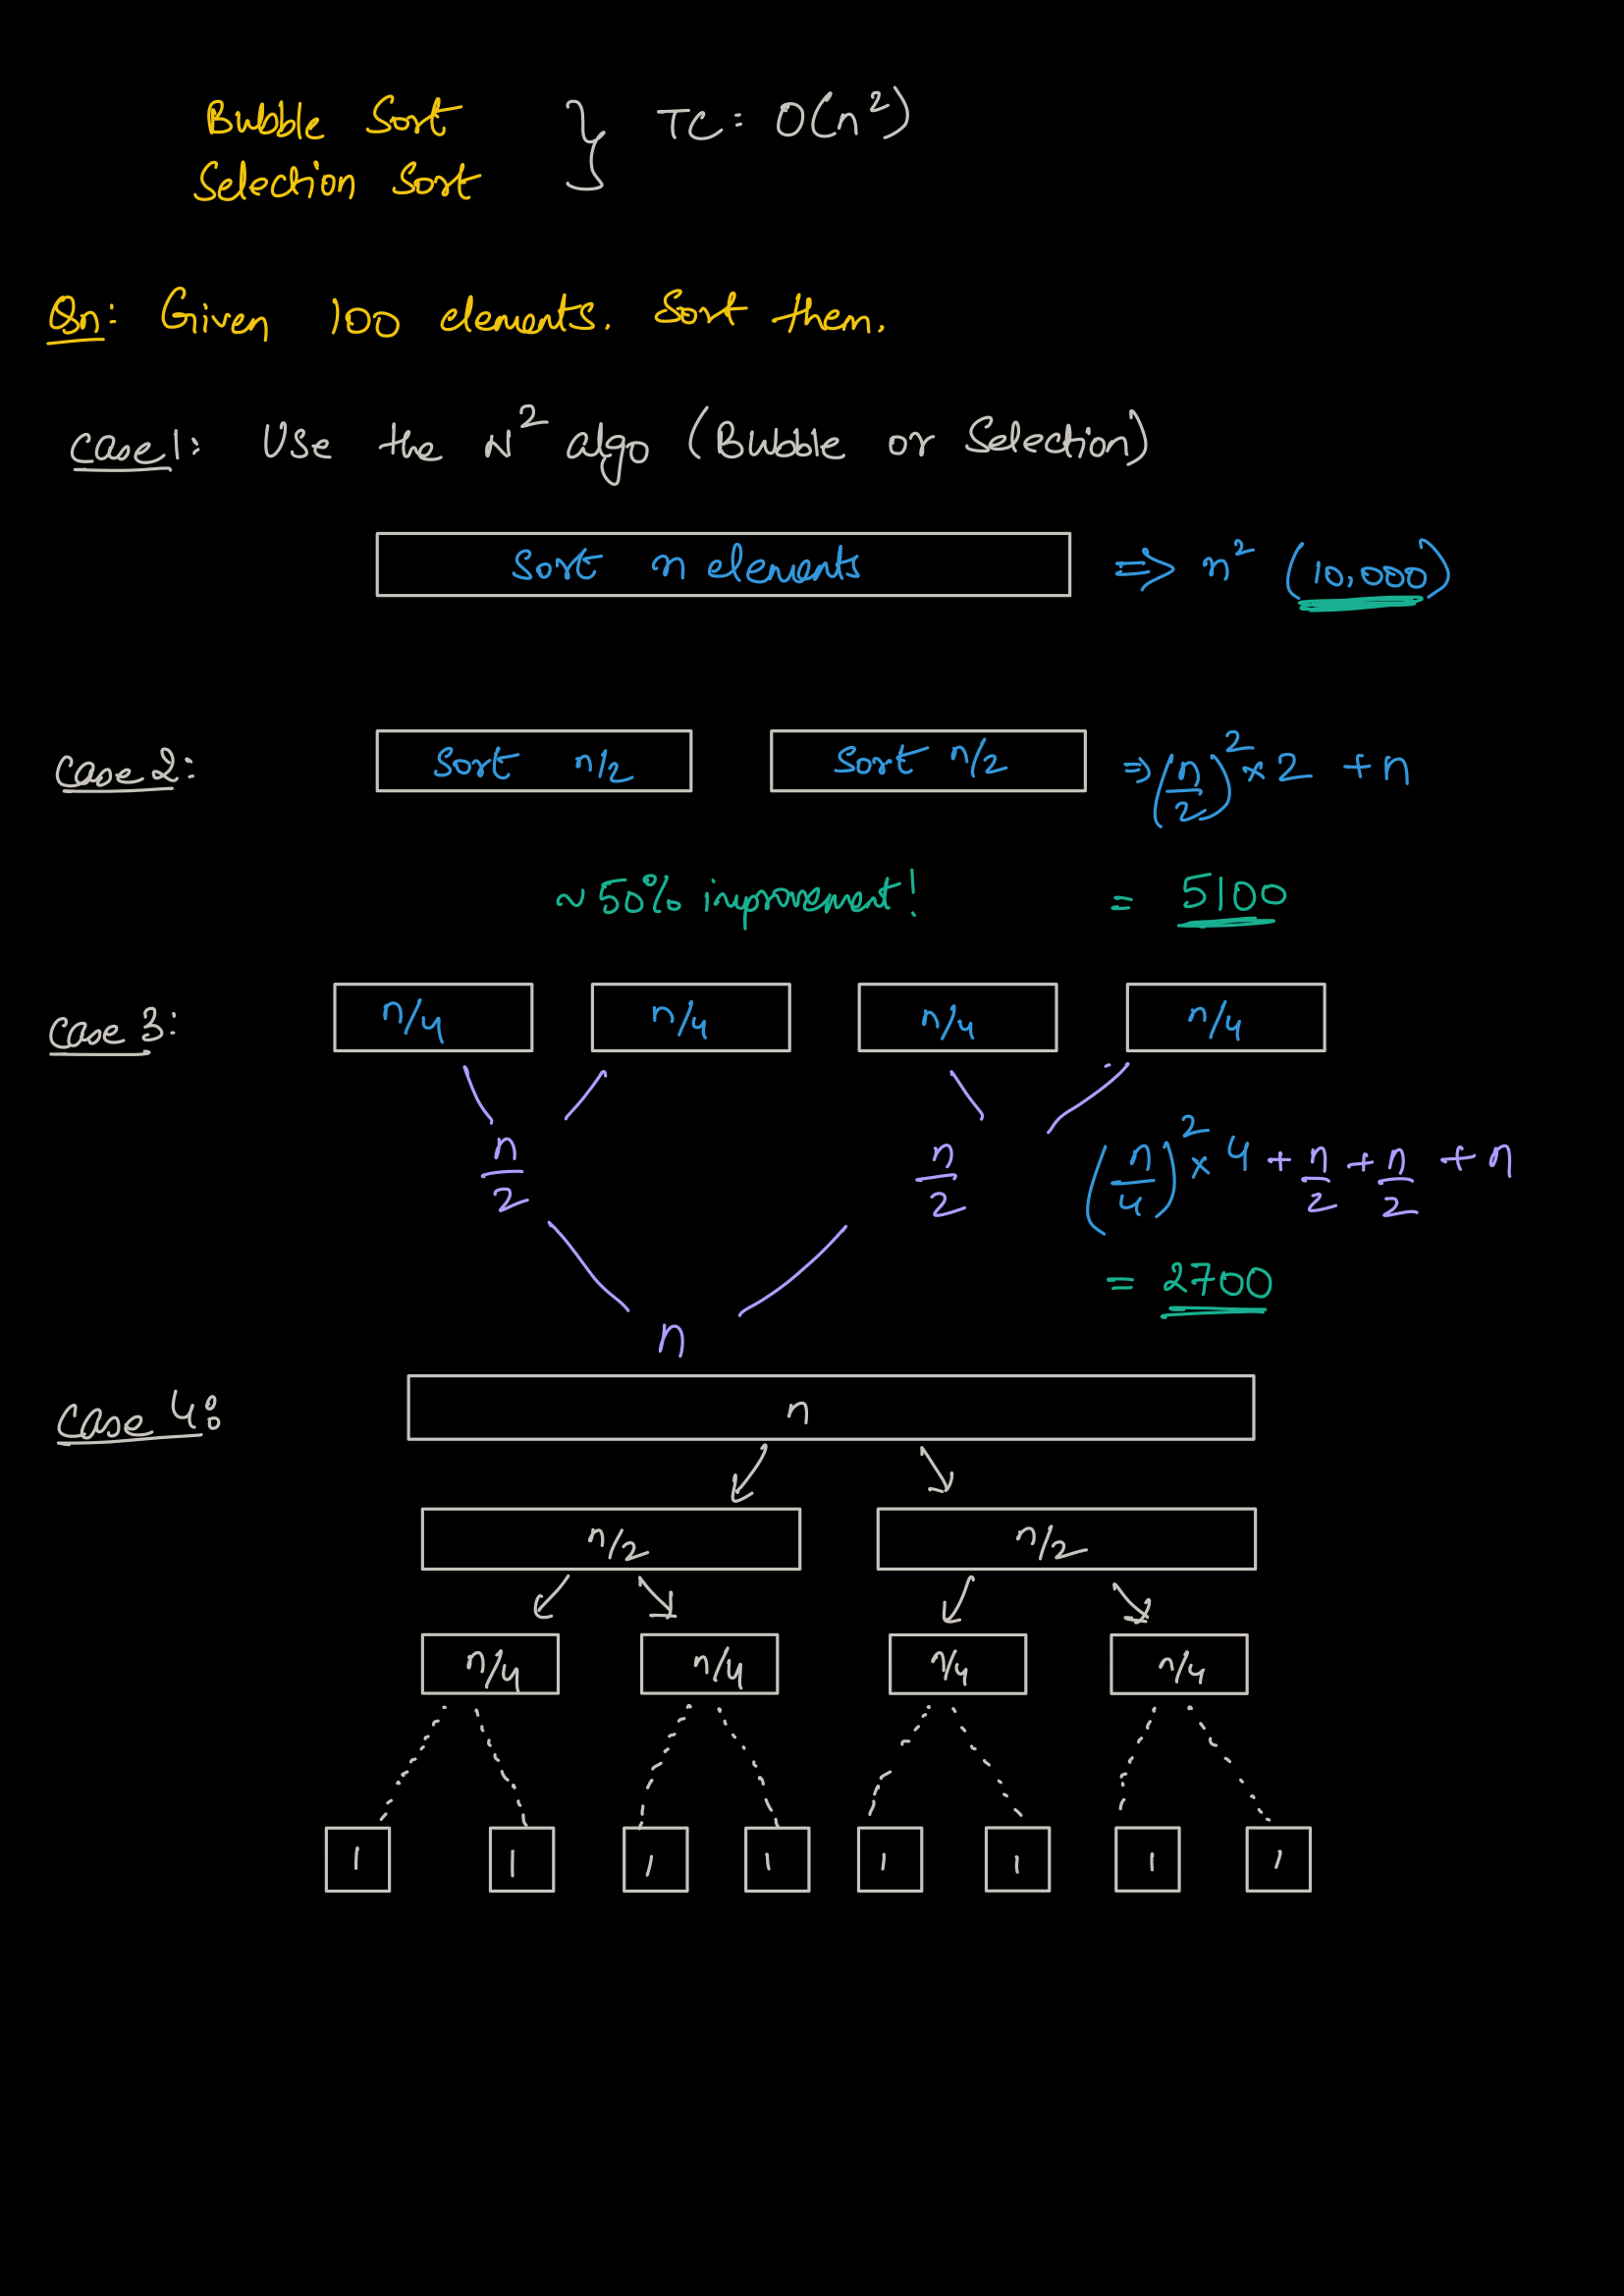 Bubble Sort } TC: O(n²)
Selection Sort
Qn: Given 100 elements. Sort them.
Case 1: Use the N² algo (Bubble or Selection)
Sort n elements => n² (10,000)
Case 2: Sort n/2 Sort n/2 => (n/2)² × 2 + n
~ 50% improvement! = 5100
Case 3: n/4 n/4 n/4 n/4
n/2 n/2 (n/4)² × 4 + n/2 + n/2 + n
= 2700
n
Case 4: n
n/2 n/2
n/4 n/4 n/4 n/4
1 1 1 1 1 1 1 1